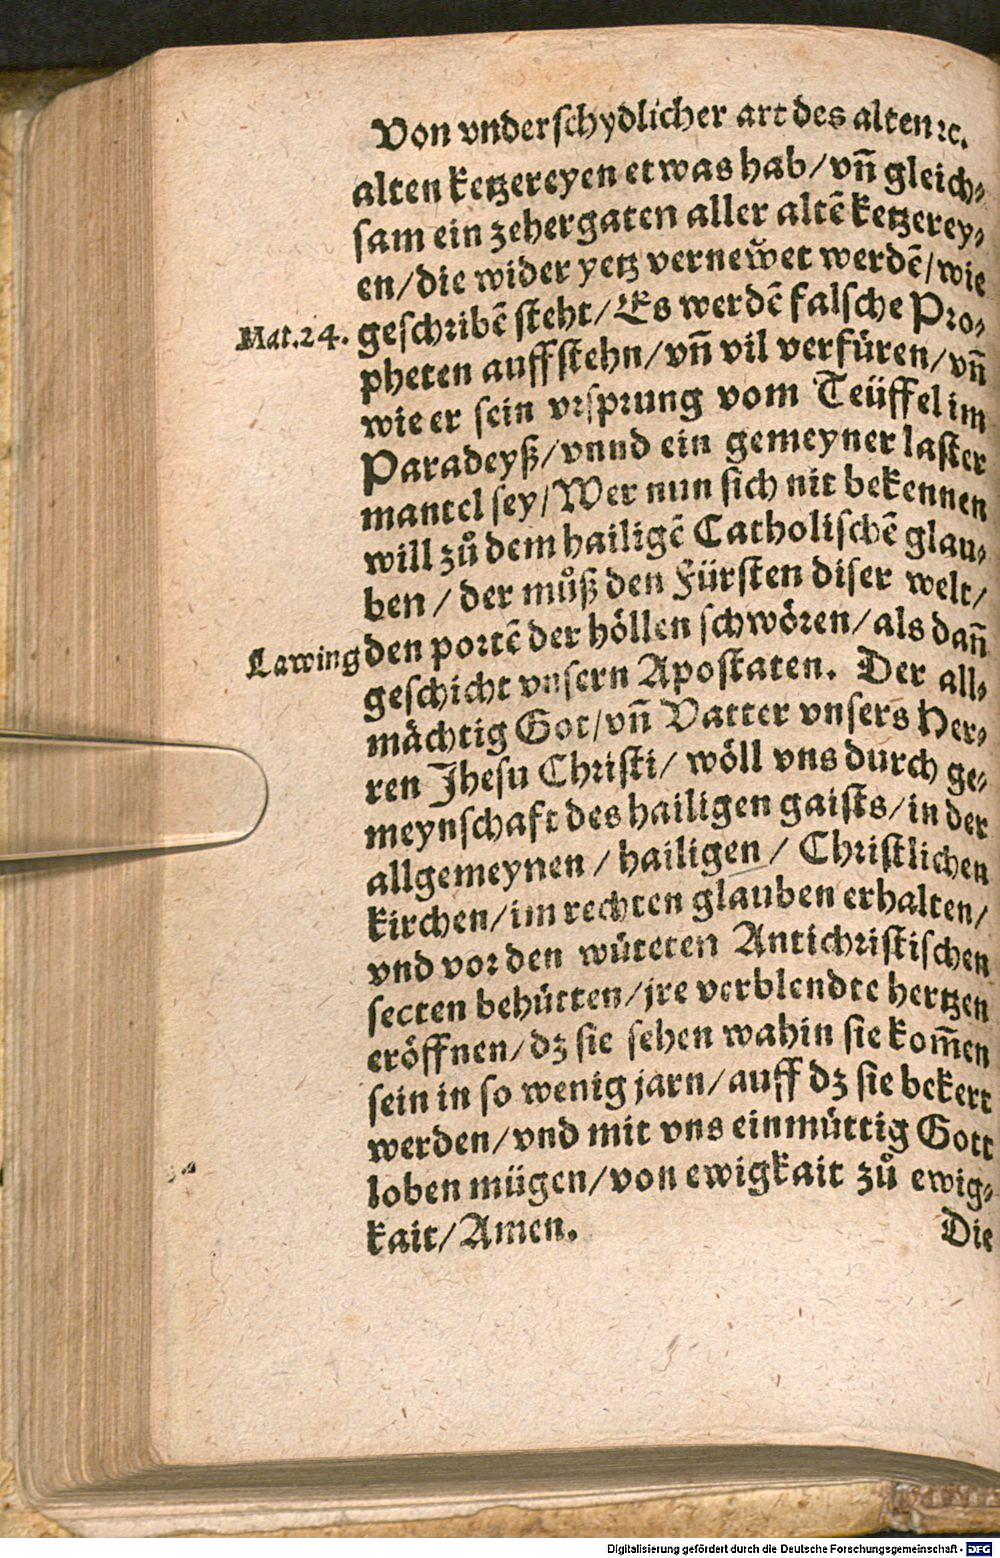 Von vnderschydlicher art des alten ꝛc.
alten ketzereyen etwas hab/vñ gleich⸗
sam ein zehergaten aller altē ketzerey⸗
en/die wider yetz vernewͤet werdē/wie
Mat.24. geschribē steht/Es werdē falsche Pro⸗
pheten auffstehn/vñ vil verfüren/vñ
wie er sein vrsprung vom Teüffel im
Paradeyß/vnnd ein gemeyner laster
mantel sey/Wer nun sich nit bekennen
will zů dem hailigē Catholischē glau⸗
ben/der můß den Fürsten diser welt/
Lawing den portē der höllen schwören/als dañ
geschicht vnsern Apostaten. Der all⸗
mächtig Got/vñ Vatter vnsers Her⸗
ren Jhesu Christi/wöll vns durch ge⸗
meynschaft des hailigen gaists/in der
allgemeynen/hailigen/Christlichen
kirchen/im rechten glauben erhalten/
vnd vor den wüteten Antichristischen
secten behütten/jre verblendte hertzen
eröffnen/dz sie sehen wahin sie kom̃en
sein in so wenig jarn/auff dz sie bekert
werden/vnd mit vns einmüttig Gott
loben mügen/von ewigkait zů ewig⸗
kait/Amen.
Die
Digitalisierung gefördert durch die Deutsche Forschungsgemeinschaft - DFG